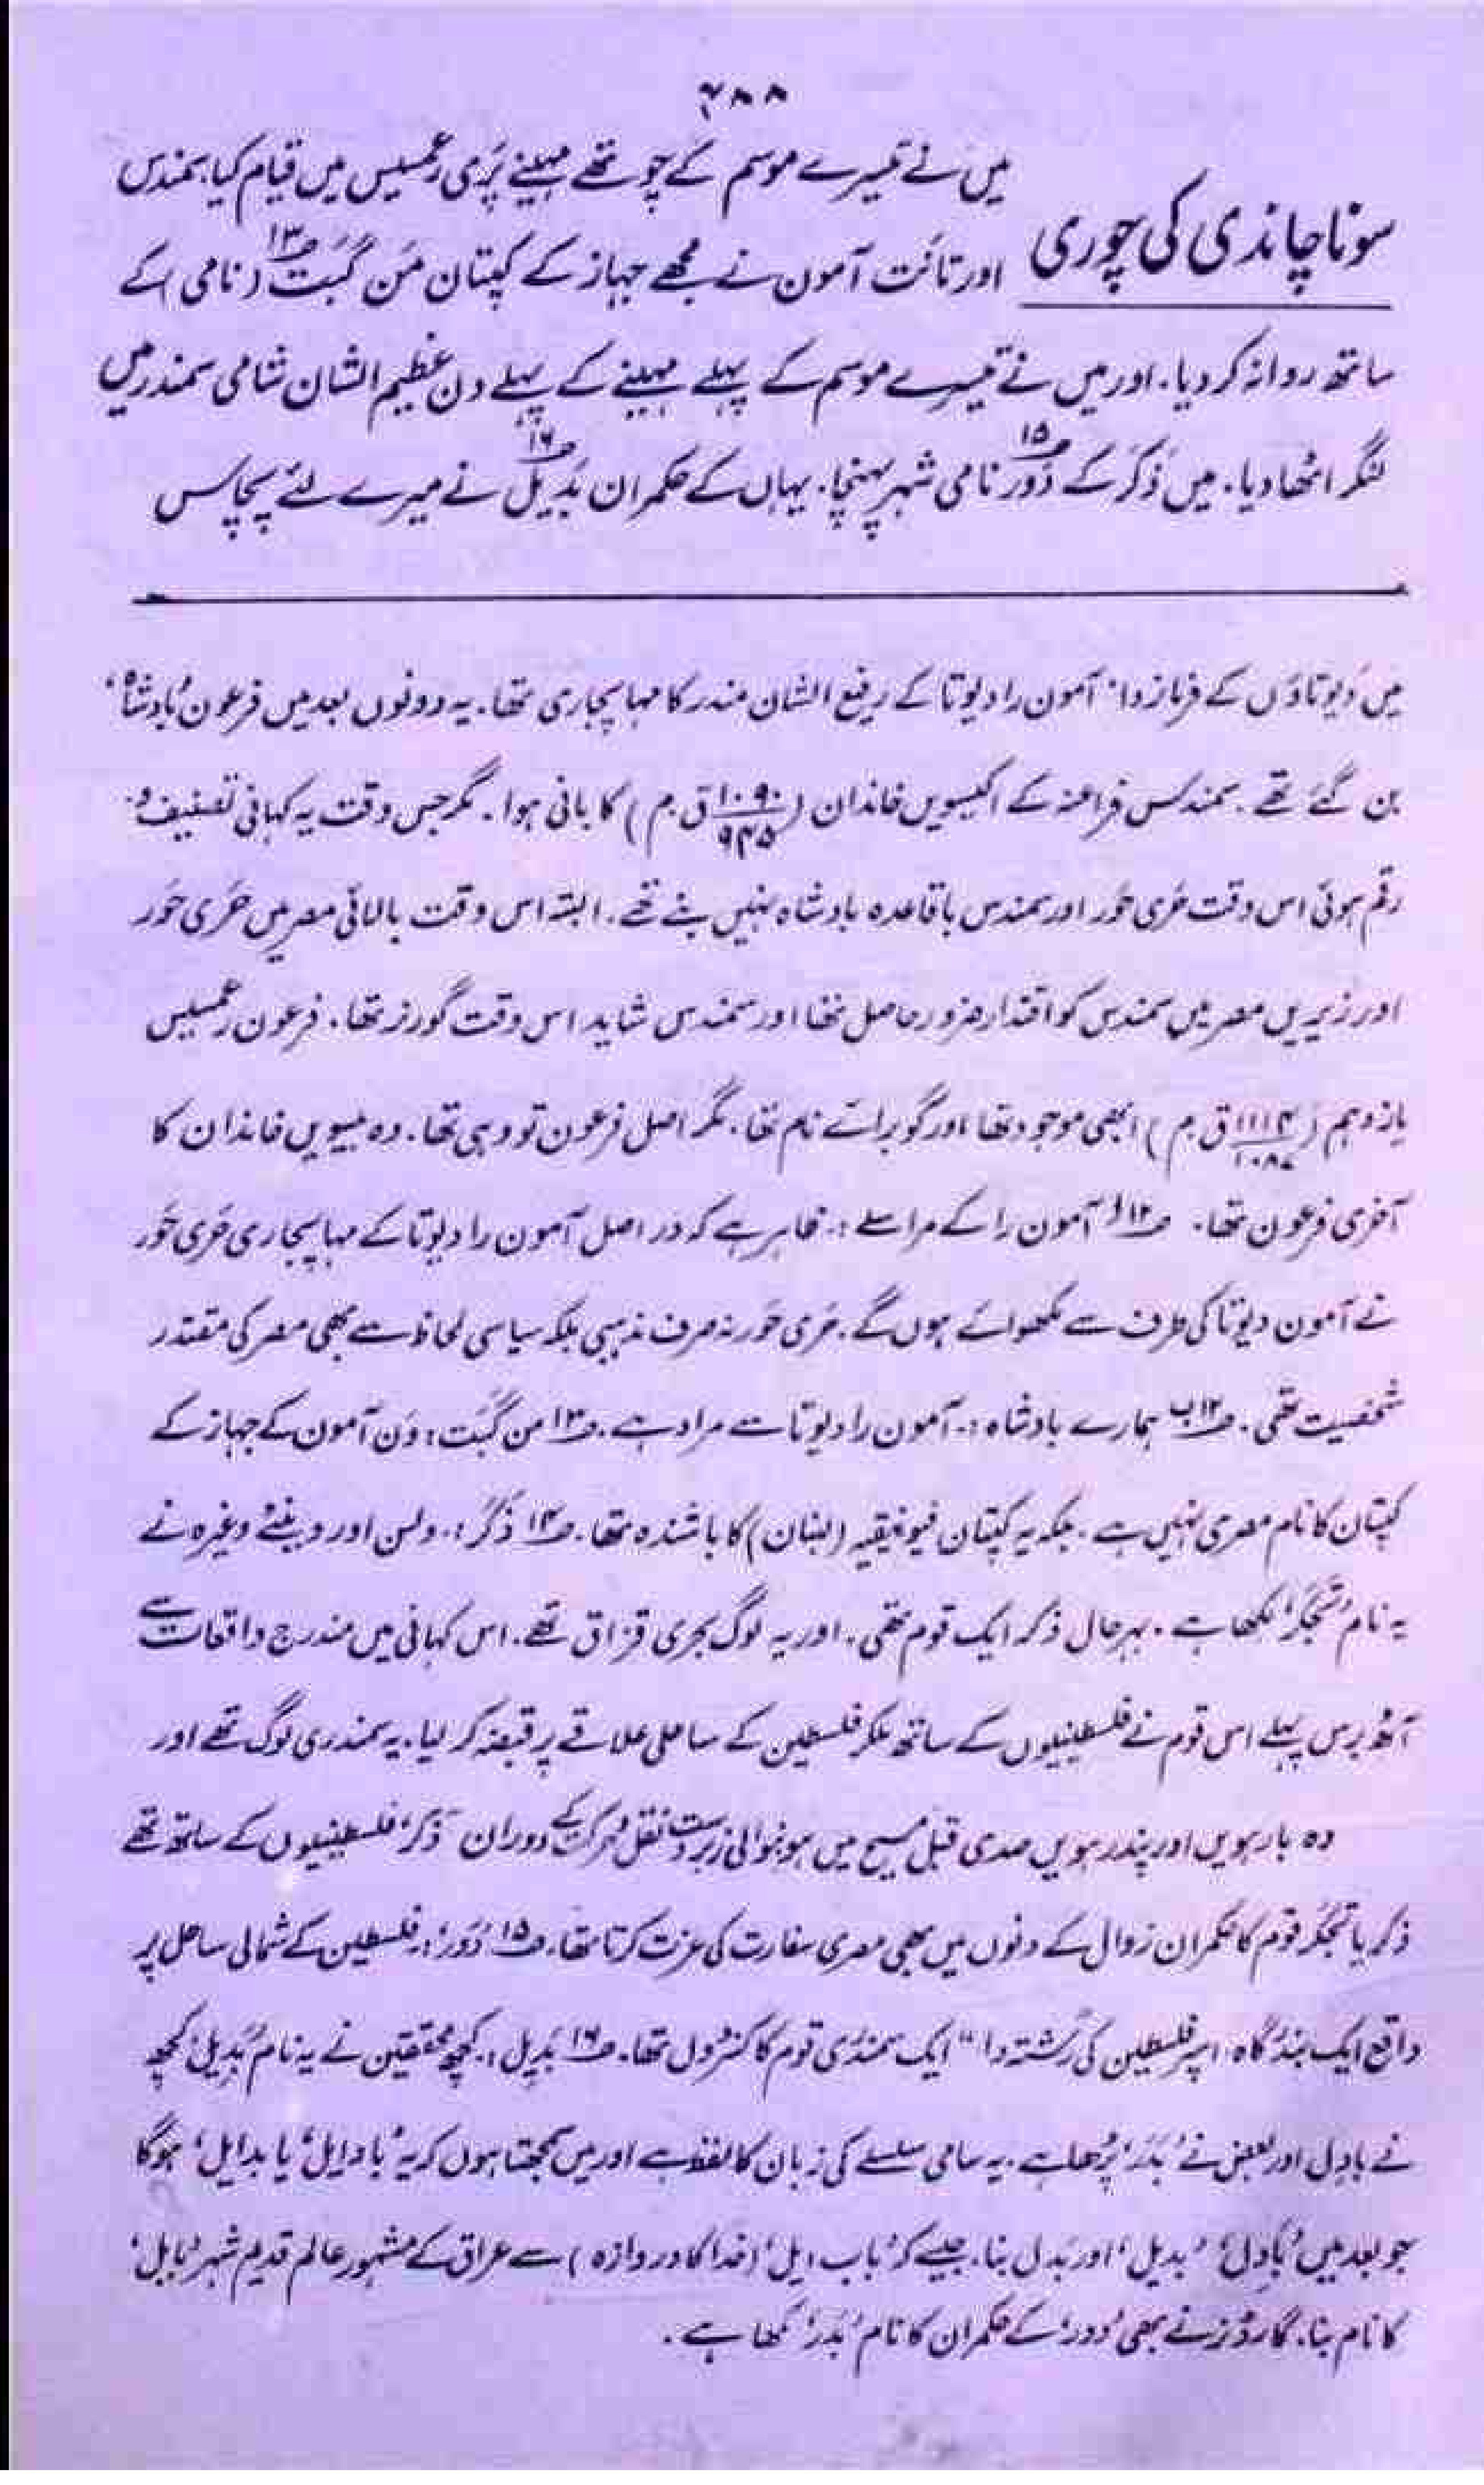 ۲۸۸
میں نے تیسرے موسم کے چوتھے مہینے پَری رعمسیس میں قیام کیا۔ سمندس
سونا چاندی کی چوری
اور تانَت آمون نے مجھے جہاز کے کپتان مَن گَبَت ؂۱۳ (نامی) کے
ساتھ روانہ کر دیا۔ اور میں نے تیسرے موسم کے پہلے مہینے کے پہلے دن عظیم الشان شامی سمندر میں
لنگر اٹھا دیا۔ میں ذَکَر کے دَور ؂۱۵ نامی شہر پہنچا۔ یہاں کے حکمران بَدیل ؂۱۶ نے میرے لئے پچاس
میں دیوتاؤں کے فرمانروا آمون را دیوتا کے رفیع الشان مندر کا مہا پجاری تھا۔ یہ دونوں بعد میں فرعون ’بادشاہ‘
بن گئے تھے۔ سمندس فراعنہ کے اکیسویں خاندان (۱۰۹۰/۹۴۵ ق۔م) کا بانی ہوا۔ مگر جس وقت یہ کہانی تصنیف و
رقم ہوئی اس وقت حَری حَور اور سمندس باقاعدہ بادشاہ نہیں بنے تھے۔ البتہ اس وقت بالائی مصر میں حَری حَور
اور زیریں مصر میں سمندس کو اقتدار ضرور حاصل تھا اور سمندس شاید اس وقت گورنر تھا۔ فرعون رعمسیس
یازدہم (۱۱۱۴/۱۰۸۷ ق م) ابھی موجود تھا اور گو برائے نام تھا۔ مگر اصل فرعون تو وہی تھا۔ وہ بیسویں خاندان کا
آخری فرعون تھا۔ ؂۱۲ا آمون را کے مراسلے :۔ ظاہر ہے کہ در اصل آمون را دیوتا کے مہا پجاری حَری حَور
نے آمون دیوتا کی طرف سے لکھوائے ہوں گے۔ حَری حَور نہ صرف مذہبی بلکہ سیاسی لحاظ سے بھی مصر کی مقتدر
شخصیت تھی۔ ؂۱۲ب ہمارے بادشاہ :۔ آمون را دیوتا سے مراد ہے۔ ؂۱۳ من گَبَت : وَن آمون کے جہاز کے
کپتان کا نام مصری نہیں ہے۔ بلکہ یہ کپتان فیونیقیہ (لبنان) کا باشندہ تھا۔ ؂۱۴ ذَکَر :۔ ولسن اور وینٹے وغیرہ نے
یہ نام ’تَجکَر‘ لکھا ہے۔ بہرحال ذکر ایک قوم تھی۔ اور یہ لوگ بحری قزاق تھے۔ اس کہانی میں مندرج واقعات سے
آٹھ برس پہلے اس قوم نے فلسطینیوں کے ساتھ ملکر فلسطین کے ساحلی علاقے پر قبضہ کر لیا۔ یہ سمندری لوگ تھے اور
وہ بارہویں اور پندرہویں صدی قبل مسیح میں ہونیوالی زبردست نقل و حرکت کے دوران ’ذکَر‘ فلسطینیوں کے ساتھ تھے
ذکر یا تجکَر قوم کا حکمران زوال کے دنوں میں بھی مصری سفارت کی عزت کرتا تھا۔ ؂۱۵ ’دَور‘ :۔ فلسطین کے شمالی ساحل پر
واقع ایک بندرگاہ۔ اس پر فلسطین کی ’رشتہ دار‘ ایک سمندری قوم کا کنٹرول تھا۔ ؂۱۶ بَدیل :۔ کچھ محققین نے یہ نام ’بَدیل‘ کچھ
نے بادِل اور بعض نے ’بَدَر‘ پڑھا ہے۔ یہ سامی سلسلے کی زبان کا لفظ ہے اور میں سمجھتا ہوں کہ یہ ’بادایل‘ یا ’بدایل‘ ہوگا
جو بعد میں ’بادِل‘ ’بدیل‘ اور بَدل بنا۔ جیسے کہ ’باب ایل‘ (خدا کا دروازہ) سے عراق کے مشہور عالم قدیم شہر ’بابل‘
کا نام بنا۔ گارڈنر نے بھی ’دَور‘ کے حکمران کا نام ’بَدَر‘ لکھا ہے۔